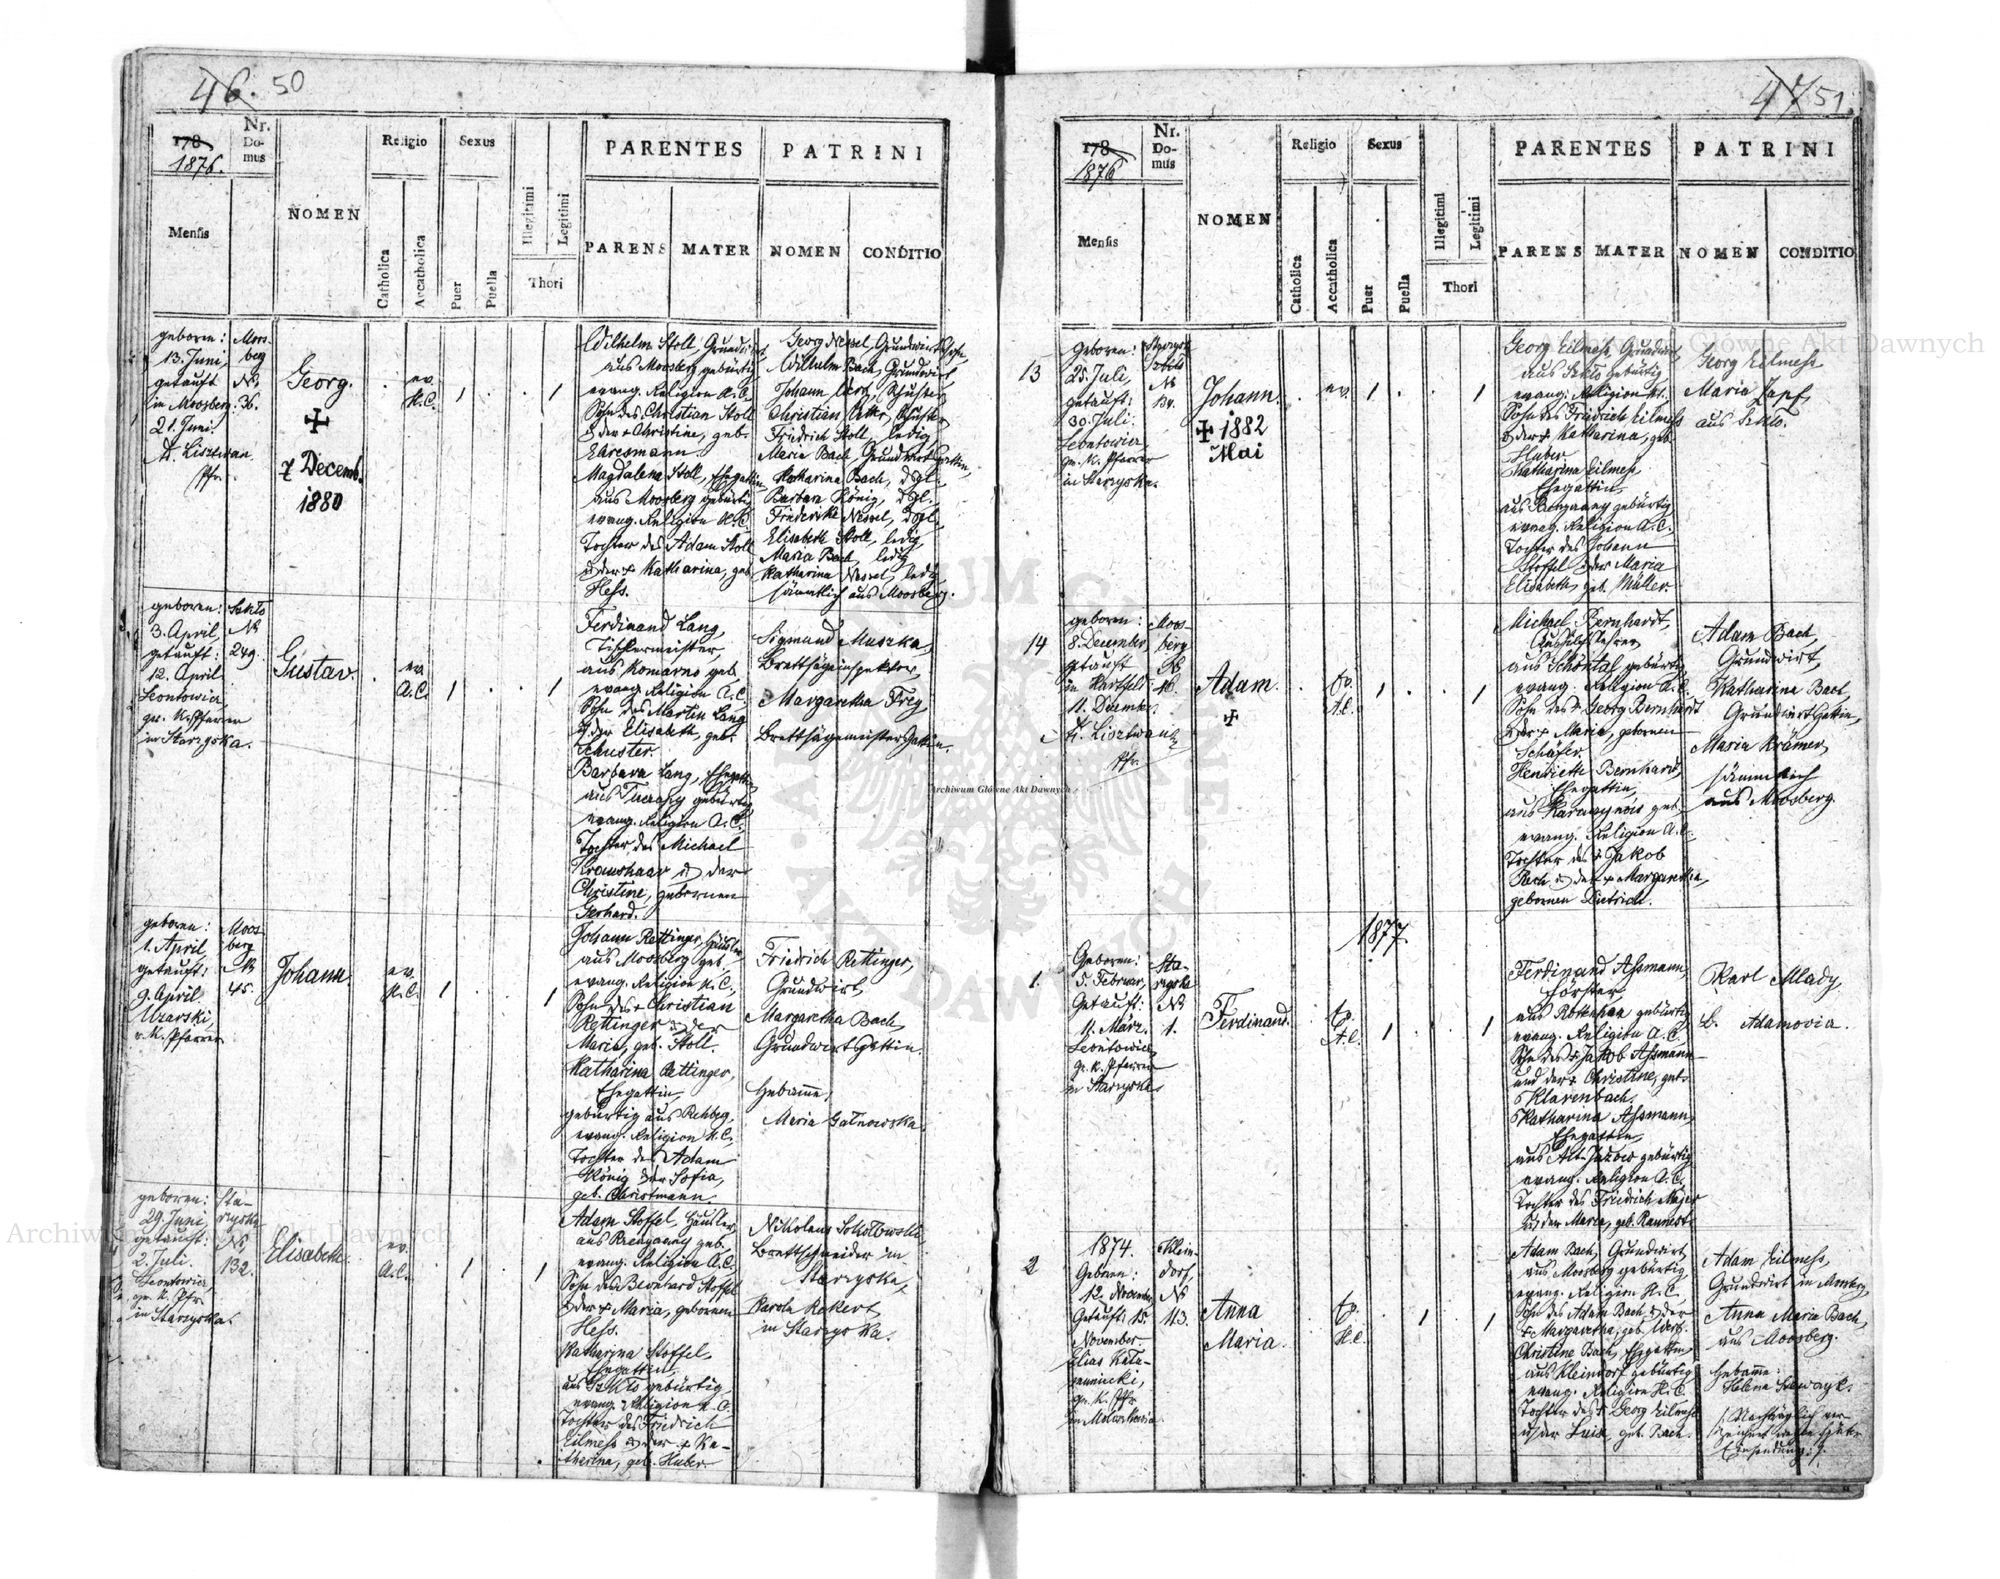 46. 50
178
1876.
Nr. Domus
Mensis
NOMEN
Religio
Catholica
Accatholica
Sexus
Puer
Puella
Illegitimi
Legitimi
Thori
PARENTES
PARENS
MATER
PATRINI
NOMEN
CONDITIO
geboren:
13. Juni,
getauft
in Moosberg
21. Juni.
Pfr.
Moos-
berg
N.
36.
Georg.
7 Decemb.
1880
ev.
H.C.
1
1
Wilhelm Stoll, Grundwirt
aus Moosberg gebürtig
evang. Religion H.C.
Sohn des Christian Stoll
& der + Christine, geb.
Ehresmann.
Magdalena Stoll, Ehegattin
aus Moosberg gebürtig
evang. Religion H.C.
Tochter des Adam Stoll
u. der + Katharina, geb.
Hess.
Georg Nessel, Grundwirths
Wilhelm Bach, Grundwirt
Johann Schuster
Christian Schuster
Friedrich Stoll, ledig
Maria Bach, Grundwirts Gattin,
Katharina Bach, dgl.
Barbara König, dgl.
Friederike Nessel, dgl.
Elisabeth Stoll, ledig
Maria Bach, ledig
Katharina Nessel, ledig
sämmtlich aus Moosberg.
geboren:
3. April,
getauft:
12. April
Leontowicz,
gr. K. Pfarrer
in Starzyska.
Szkło
N.
249.
Gustav.
ev.
A.C.
1
1
Ferdinand Lang,
Tischlermeister,
aus Komarno geb.
evang. Religion A.C.
Sohn des Martin Lang
& der Elisabeth, geb.
Schuster.
Barbara Lang, Ehegattin
aus gebürtig
evang. Religion A.C.
Tochter des Michael
Kraushaar u. der
Christine, gebornen
Gerhard.
Sigmund Muszka,
Brettsägeinspektor,
Margaretha Frey
Brettsägemeisters Gattin.
geboren:
1. April,
getauft:
9. April
r. K. Pfarrer
Moos-
berg
N.
45.
Johann
ev.
H.C.
1
1
Johann Rettinger, Häusler
aus Moosberg geb.
evang. Religion H.C.,
Sohn des + Christian
Rettinger u. der
Maria, geb. Stoll.
Katharina Rettinger,
Ehegattin,
gebürtig aus Rehberg,
evang. Religion H.C.
Tochter des Adam
König u. der Sofia,
geb. Christmann.
Friedrich Rettinger,
Grundwirt,
Margaretha Bach,
Grundwirts Gattin.
Hebamme,
Maria Galnowska.
geboren:
29. Juni,
getauft:
2. Juli.
Leontowicz,
gr. K. Pfr.
in Starzyska.
Sta-
rzyska
N.
132.
Elisabeth.
ev.
A.C.
1
1
Adam Stoffel, Häusler
aus geb.
evang. Religion A.C.
Sohn des Bernhard Stoffel
& der + Maria, gebornen
Hess.
Katharina Stoffel,
Ehegattin,
aus Szkło gebürtig
evang. Religion H.C.
Tochter des Friedrich
Eilmess u. der + Ka-
tharina, geb. Huber
Nikolaus Sokolowski
Brettschneider in
Starzyska,
Karola Eckert,
in Starzyska.
47 51.
178
1876
Nr. Domus
Mensis
NOMEN
Religio
Catholica
Accatholica
Sexus
Puer
Puella
Illegitimi
Legitimi
Thori
PARENTES
PARENS
MATER
PATRINI
NOMEN
CONDITIO
13
Geboren:
25. Juli,
getauft:
30. Juli.
Leontowicz,
gr. K. Pfarrer
in Starzyska.
Johann.
1882
Mai
ev.
1
1
Georg Eilmess, Grundwirt
aus Szkło gebürtig
evang. Religion
Sohn des Friedrich Eilmess
& der + Katharina, geb.
Huber
Katharina Eilmess
Ehegattin,
aus gebürtig
evang. Religion A.C.
Tochter des Johann
Stoffel & der Maria
Elisabeth, geb. Müller.
Georg Eilmess
Maria Zapf
aus Szkło.
14
geboren:
8. December,
getauft
in Hartfeld
11. Decembr.
Pfr.
Moos-
berg
N.
46.
Adam.
Ev.
H.C.
1
1
Michael Bernhardt,
Aushilfslehrer
aus Schöntal gebürtig
evang. Religion A.C.
Sohn des + Georg Bernhardt
& der + Maria, gebornen
Schäfer
Henriette Bernhardt,
Ehegattin,
aus geb.
evang. Religion A.C.
Tochter des + Jakob
Bach u. der + Margaretha,
gebornen Dietrich.
Adam Bach,
Grundwirt,
Katharina Bach,
Grundwirt Gattin,
Maria Krämer,
sämmtlich
aus Moosberg.
1877.
1.
Geboren:
5. Februar,
Getauft:
11. März.
Leontowicz,
gr. K. Pfarrer
in Starzyska
Sta-
rzyska
N.
1.
Ferdinand.
Ev.
A.C.
1
1
Ferdinand Assmann,
Förster,
aus Rotenhan gebürtig
evang. Religion A.C.
Sohn des + Jakob Assmann
und der + Christine, geb.
Klarenbach.
Katharina Assmann,
Ehegattin,
aus Alt-Jazow gebürtig
evang. Religion A.C.
Tochter des Friedrich Mayer
u. der Maria, geb.
Karl Mlady
L. Adamovia.
2
1874.
Geboren:
12. November
Getauft: 15.
November
Elias
gr. K. Pfr.
in
Klein-
dorf,
N.
113.
Anna
Maria.
Ev.
H.C.
1
1
Adam Bach, Grundwirt
aus Moosberg gebürtig
evang. Religion H.C.
Sohn des Adam Bach u. der
+ Margaretha, geb.
Christine Bach, Ehegattin,
aus Kleindorf gebürtig
evang. Religion H.C.
Tochter des + Georg Eilmess
u. der Luise, geb. Bach.
Adam Eilmess,
Grundwirt in Moosberg,
Anna Maria Bach,
aus Moosberg.
Hebamme:
Helena
Nachträglich ver-
zeichnet wegen später
Einsendung.
Archiwum Główne Akt Dawnych
Archiwum Główne Akt Dawnych
Archiwum Główne Akt Dawnych